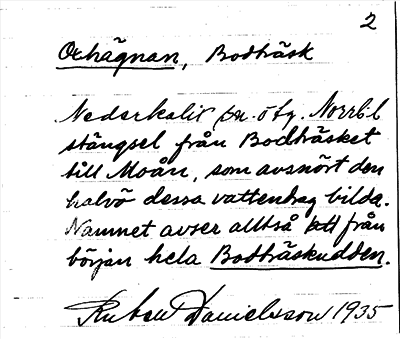 2
Oxhägnan, Bodträsk
Nederkalix sn. ö fg. Norrb.l
stängsel från Bodträsket
till Moån, som avsnört den
halvö dessa vattendrag bilda.
Namnet avser alltså från
början hela Bodträskudden.
Ruben Danielsson 1935